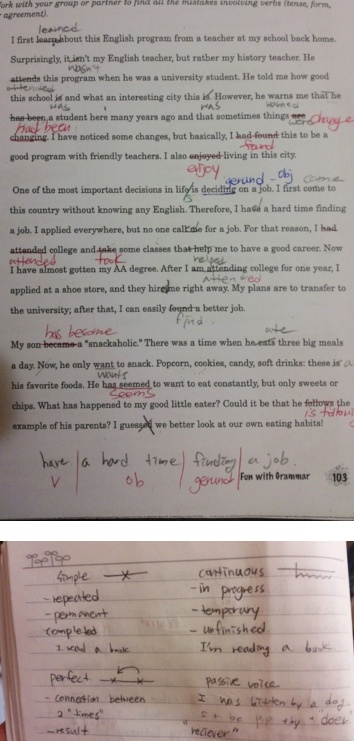 ork with your group or partner to find all the mistakes involving verbs (tense, form,
agreement).
learned
I first learn about this English program from a teacher at my school back home.
Surprisingly, it isn't my English teacher, but rather my history teacher. He
wasn't
attends this program when he was a university student. He told me how good
attended
this school is and what an interesting city this is. However, he warns me that he
was was warned
has been a student here many years ago and that sometimes things are
were change
had been
changing. I have noticed some changes, but basically, I had found this to be a
found
good program with friendly teachers. I also enjoyed living in this city.
enjoy
gerund - obj came
One of the most important decisions in life is deciding on a job. I first come to
this country without knowing any English. Therefore, I had a hard time finding
a job. I applied everywhere, but no one call me for a job. For that reason, I had
attended college and take some classes that help me to have a good career. Now
attended took helped
I have almost gotten my AA degree. After I am attending college for one year, I
attended
applied at a shoe store, and they hire me right away. My plans are to transfer to
the university; after that, I can easily found a better job.
find
has become ate
My son became a "snackaholic." There was a time when he eats three big meals
a day. Now, he only want to snack. Popcorn, cookies, candy, soft drinks: these is
wants
his favorite foods. He has seemed to want to eat constantly, but only sweets or
seems
chips. What has happened to my good little eater? Could it be that he follows the
is follow
example of his parents? I guessed we better look at our own eating habits!
have | a hard time | finding a job.
V ob gerund
Fun with Grammar 103
simple continuous
- repeated - in progress
- permanent - temporary
completed - unfinished
I read a book I'm reading a book
perfect passive voice
- connection between I was bitten by a dog
2 "times" "doer"
- result "reciever"